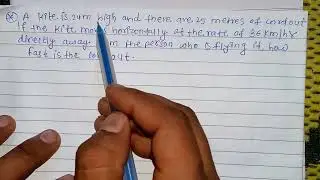 (*) A kite is 24m high and there are 25 metres of cord out
If the kite moves horizontally at the rate of 36 km/hr
directly away from the person who is flying it, how
fast is the out.